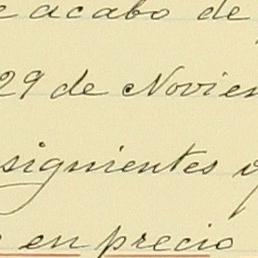 acabo de
29 de Noviem
siguientes y
en precio